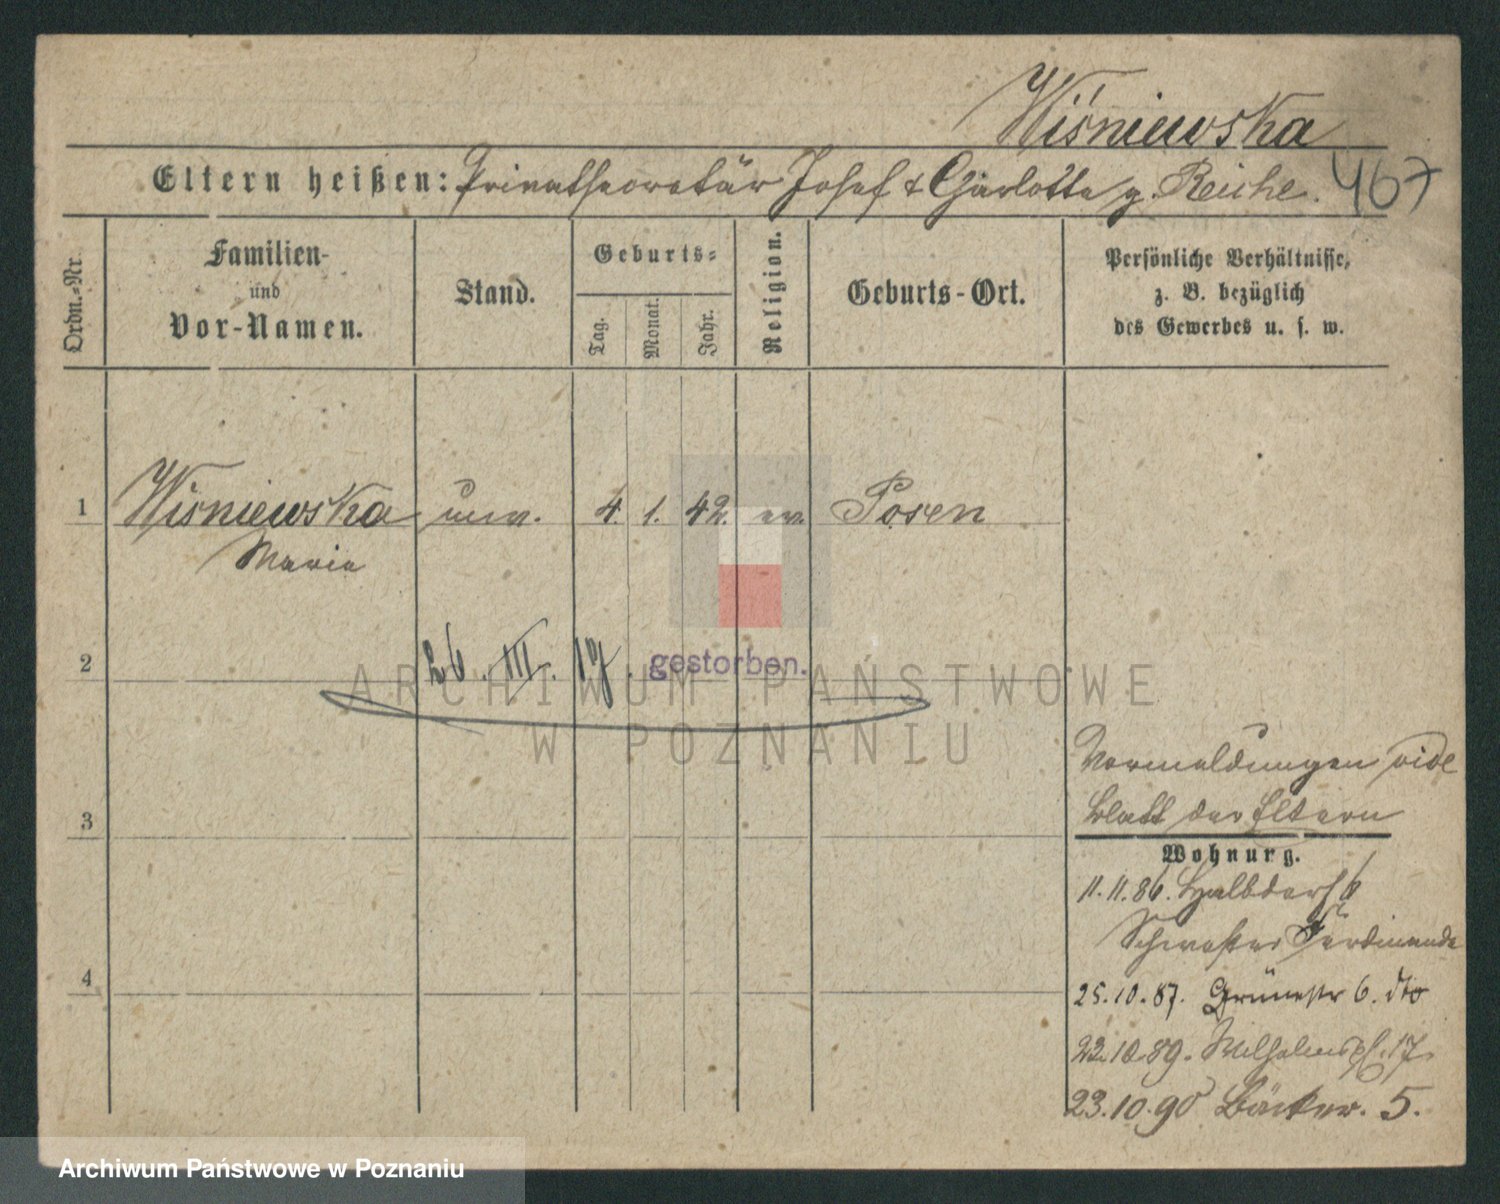 Wiśniewska
Eltern heißen: Privatsecretär Josef & Charlotte g. Reiche. 467
Ordn.-Nr.
Familien-
und
Vor-Namen.
Stand.
Geburts-
Tag.
Monat.
Jahr.
Religion.
Geburts-Ort.
Persönliche Verhältnisse,
z. B. bezüglich
des Gewerbes u. s. w.
1 Wisniewska unv. 4. 1. 42. ev. Posen
Maria
2 26. III. 17. gestorben.
ARCHIWUM PAŃSTWOWE
W POZNANIU
Vormeldungen vide
Blatt der Eltern
3
Wohnung.
11.11.86. Halbdorf 6
Schwester Ferdinande
4
25.10.87. Grünestr 6. dto
22.10.89. Wilhelmspl. 17.
23.10.90 Bäcker. 5.
Archiwum Państwowe w Poznaniu